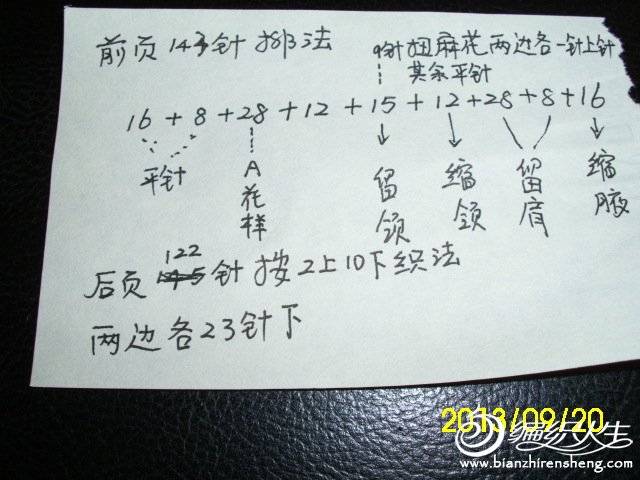 前页143针排法
9针扭麻花两边各一针上针
其余平针
16+8+28+12+15+12+28+8+16
平针
A花样
留领
缩领
留肩
缩腋
后页122针按2上10下织法
两边各23针下
2013/09/20
编织人生
www.bianzhirensheng.com